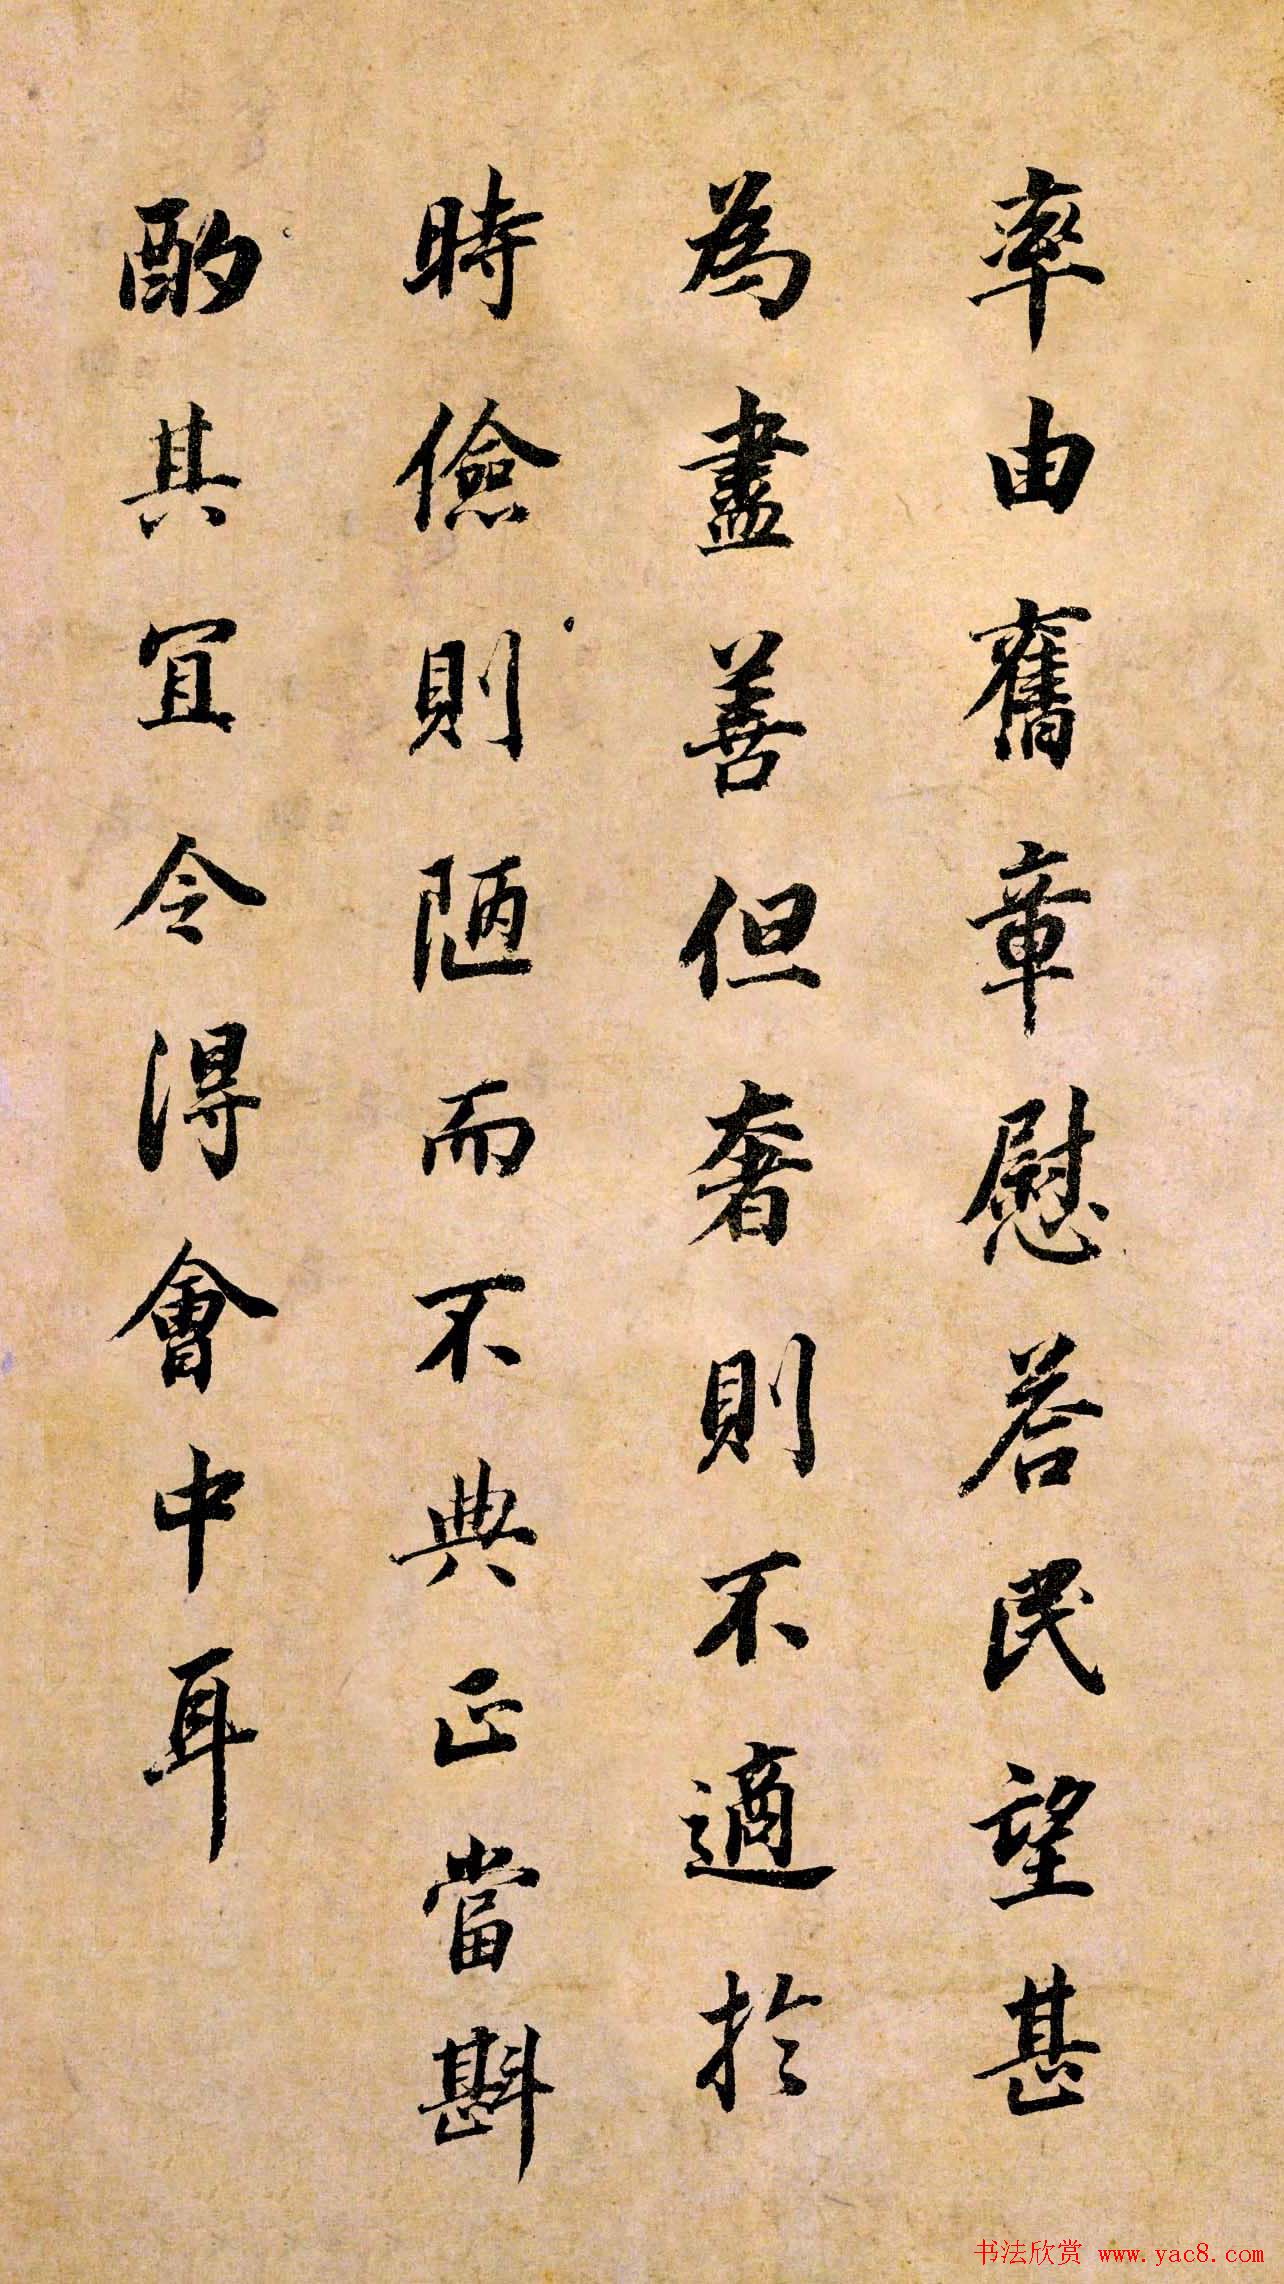 率由舊章慰荅民望甚
為盡善但奢則不適於
時儉則陋而不典正當斟
酌其宜令得會中耳
书法欣赏 www.yac8.com